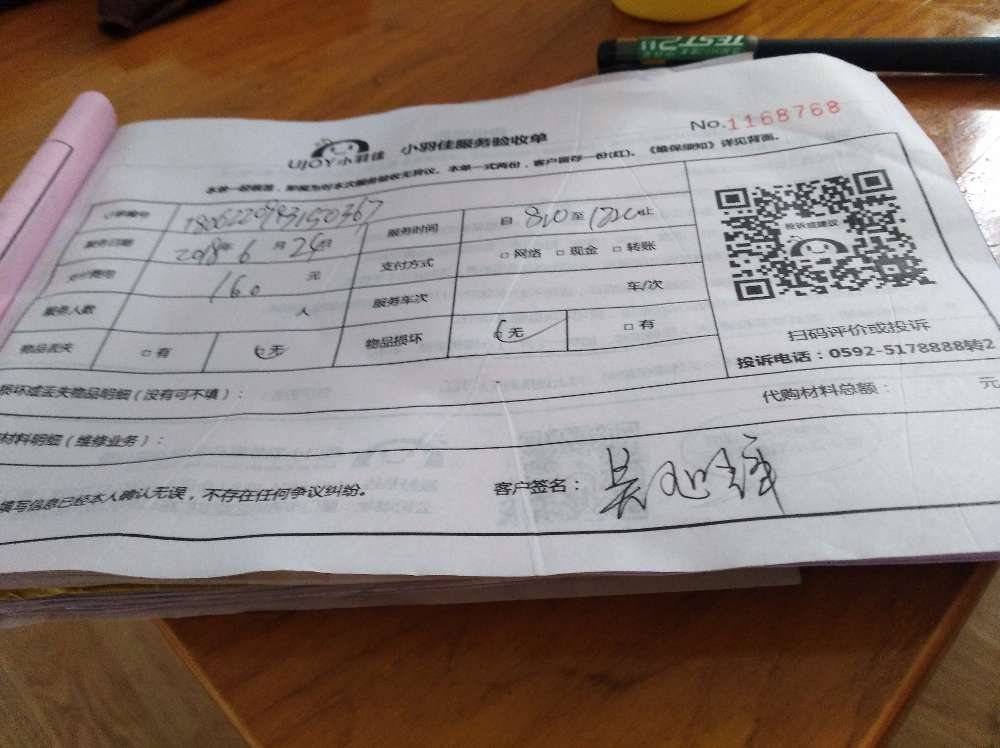 TEST 2H
No.1168768
UJOY小羽佳 小羽佳服务验收单
本单一经核签，即视为对本次服务验收无异议。本单一式两份，客户留存一份(红)。《维保细则》详见背面。
订单编号
服务时间 自 8:00 至 12:00 止
服务日期 2018年 6 月 24日
支付方式 □网络 □现金 □转账
支付费用 160 元
服务人数 人 服务车次 车/次
物品丢失 □有 □无 物品损坏 □无 □有
投诉或建议
扫码评价或投诉
投诉电话：0592-5178888转2
损坏或丢失物品明细（没有可不填）：
代购材料总额： 元
材料明细（维修业务）：
填写信息已经本人确认无误，不存在任何争议纠纷。
客户签名：吴